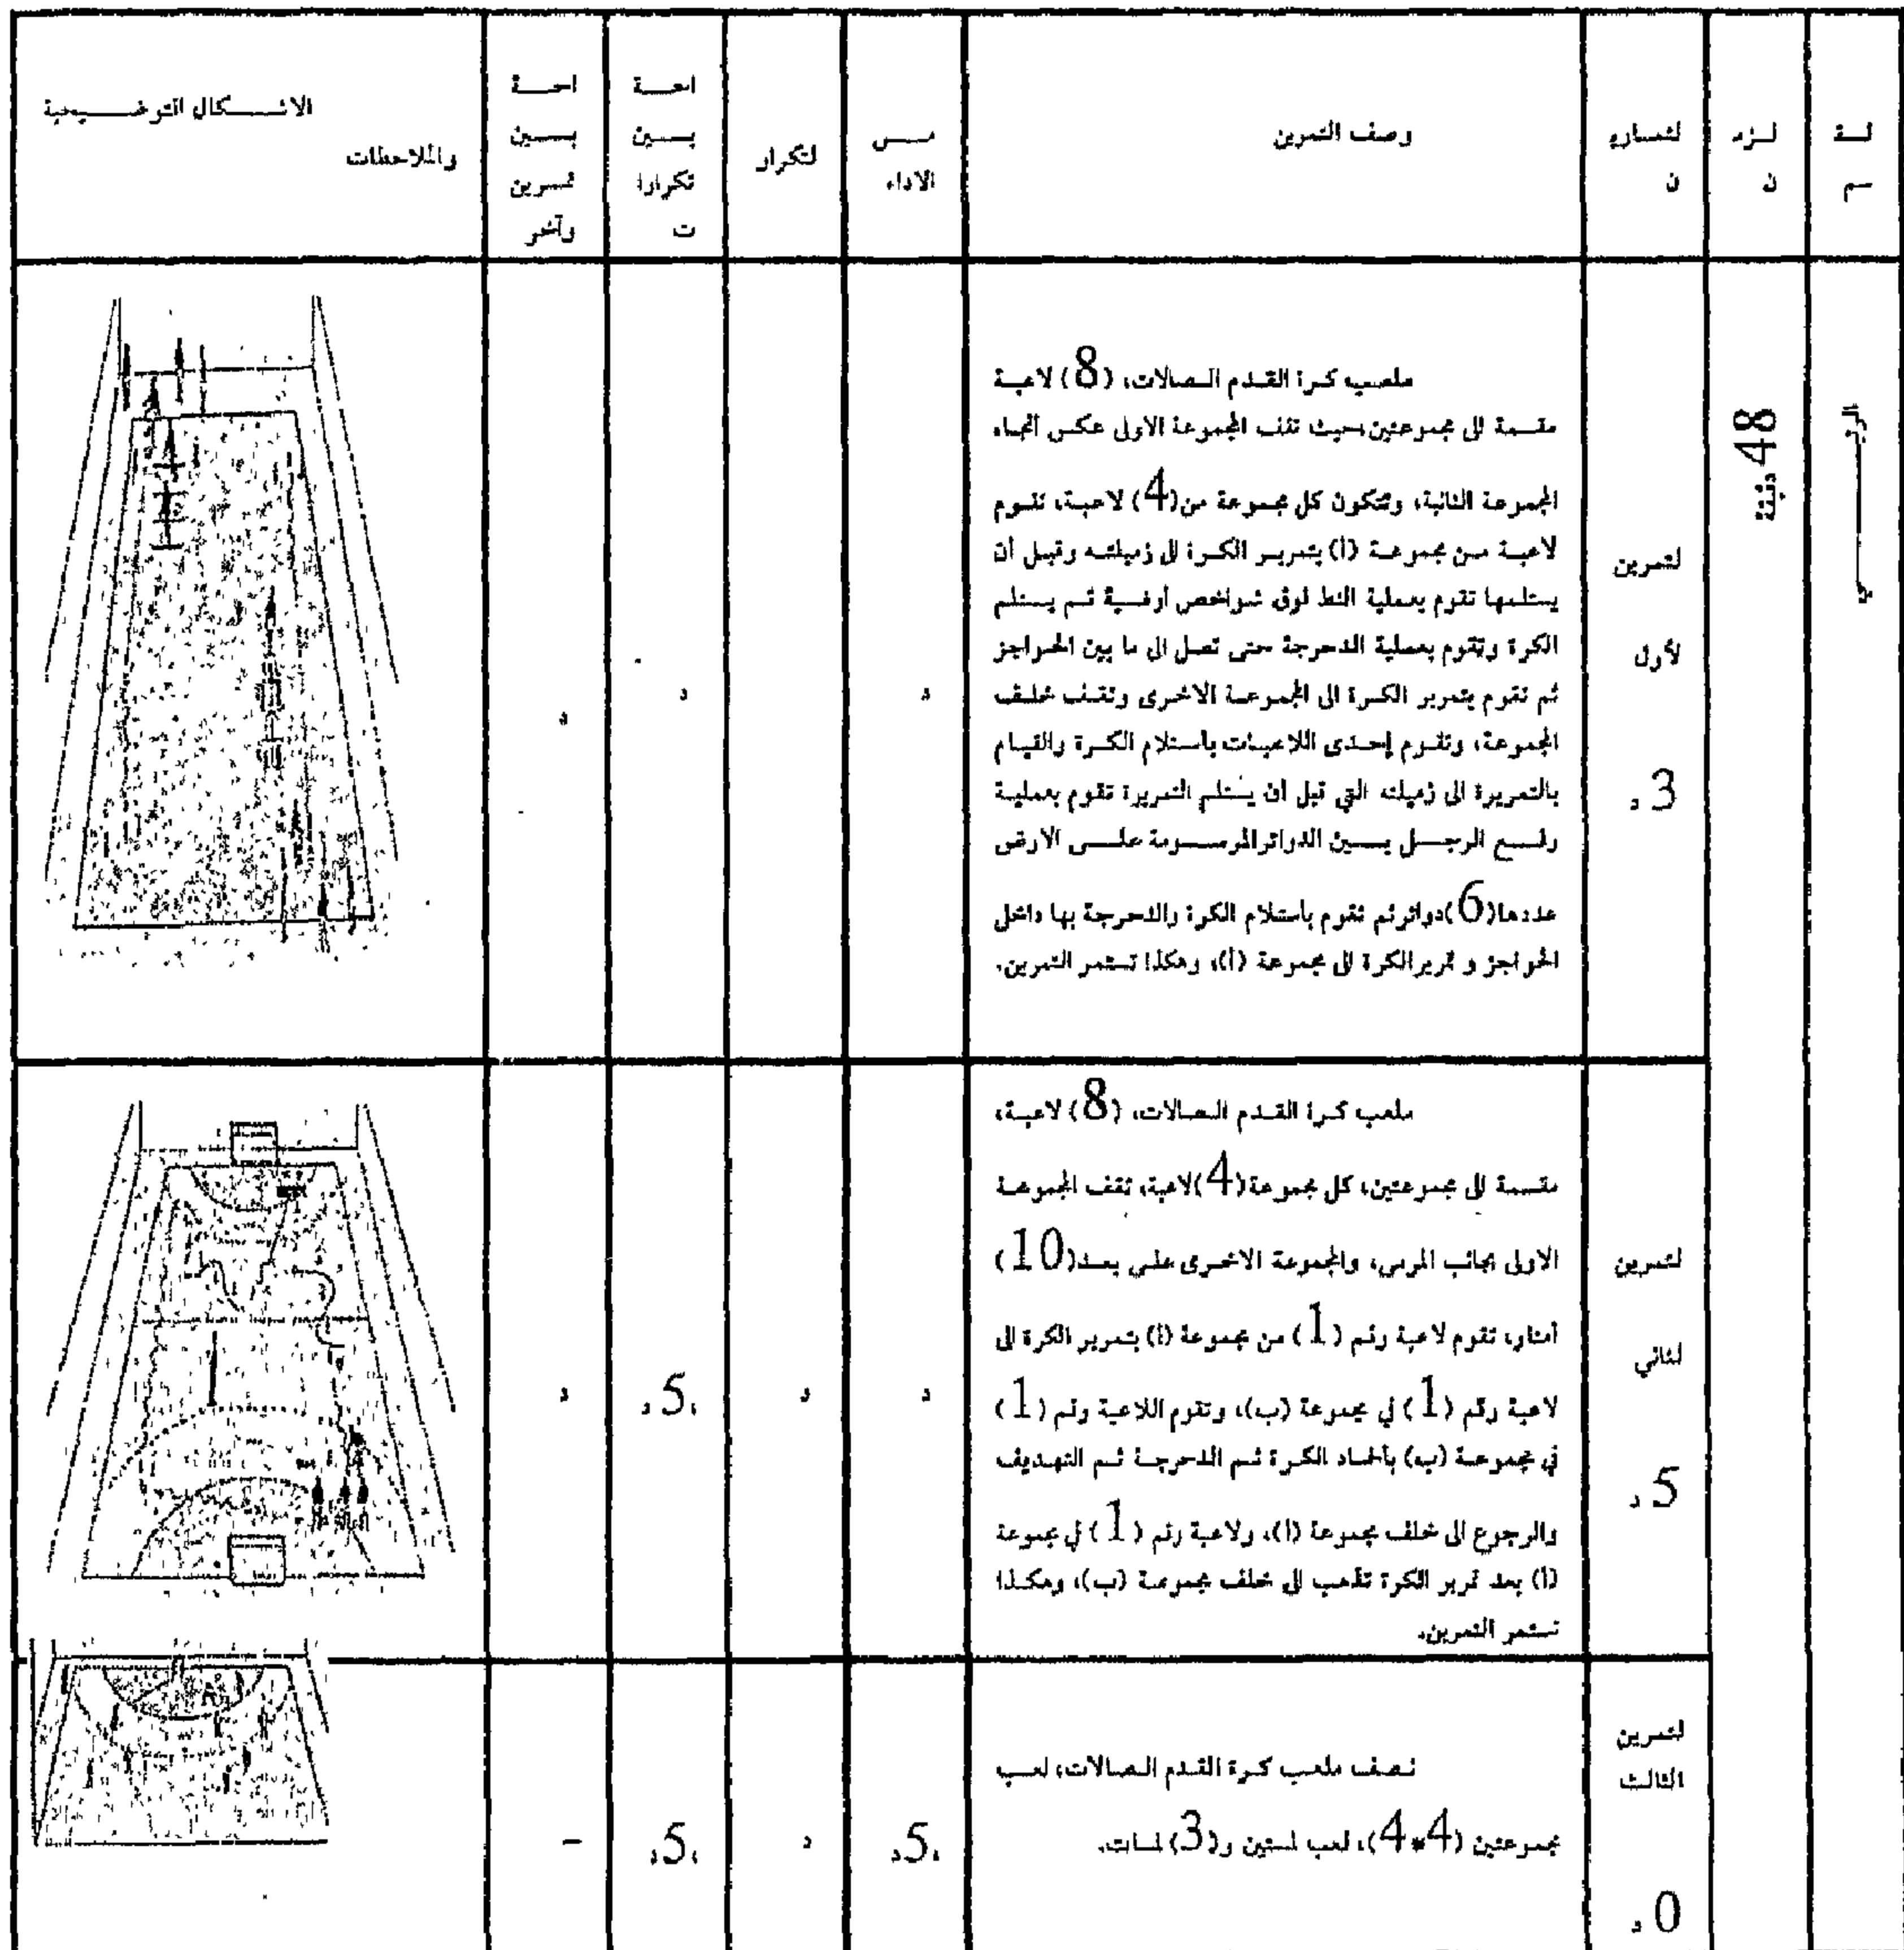 لـزم
ن
لتمـاريـ
ن
وصف التمرين
الاداء
لتكرار
بـــين
تكرارا
ت
بـــين
تمـرين
وآخر
الاشـــكال التوضـــيحية
والملاحظات
48 دقيقة
لتمرين
لأول
3 د
ملعـب كـرة القـدم الـصالات، (8) لاعبـة
مقـسمة الى مجموعتين،حيث تقف المجموعة الاولى عكـس أتجـاه
المجموعة الثانية، وتتكون كل مجموعة من(4) لاعبـة، تقـوم
لاعبـة مـن مجموعـة (أ) بتمريـر الكـرة الى زميلتـه وقبـل أن
يستلمها تقوم بعملية النط فوق شـواخص أرضـية ثـم يـستلم
الكرة وتقوم بعملية الدحرجة حتى تصل الى ما بين الحـواجز
ثم تقوم بتمرير الكـرة الى المجموعـة الاخـرى وتقـف خلـف
المجموعة، وتقـوم إحـدى اللاعبـات باسـتلام الكـرة والقيـام
بالتمريرة الى زميلته التي قبل أن يستلم التمريرة تقوم بعمليـة
رفـــع الرجـــل بـــين الدوائرالمرســـومة علـــى الارض
عددها(6)دوائرثم تقوم باستلام الكرة والدحرجة بها داخل
الحواجز و تمريرالكرة الى مجموعة (أ)، وهكذا تستمر التمرين.
د
د
د
لتمرين
لثاني
5 د
ملعب كـرة القـدم الـصالات، (8) لاعبـة،
مقـسمة الى مجموعتين، كل مجموعة(4)لاعبة، تقف المجموعـة
الاولى بجانب المرمى، والمجموعة الاخـرى علـى بعـد(10)
أمتار، تقوم لاعبة رقم (1) من مجموعة (أ) بتمرير الكرة الى
لاعبة رقم (1) في مجموعة (ب)، وتقوم اللاعبة رقم (1)
في مجموعـة (ب) بأخمـاد الكـرة ثـم الدحرجـة ثـم التهـديف
والرجوع الى خلف مجموعة (أ)، ولاعبة رقم (1) في مجموعة
(أ) بعد تمرير الكرة تذهب الى خلف مجموعـة (ب)، وهكـذا
تستمر التمرين.
د
د
،5د
د
لتمرين
الثالث
0 د
نـصف ملعـب كـرة القـدم الـصالات، لعـب
مجموعتين (4*4)، لعب لمستين و(3) لمسات.
،5د
د
،5د
–